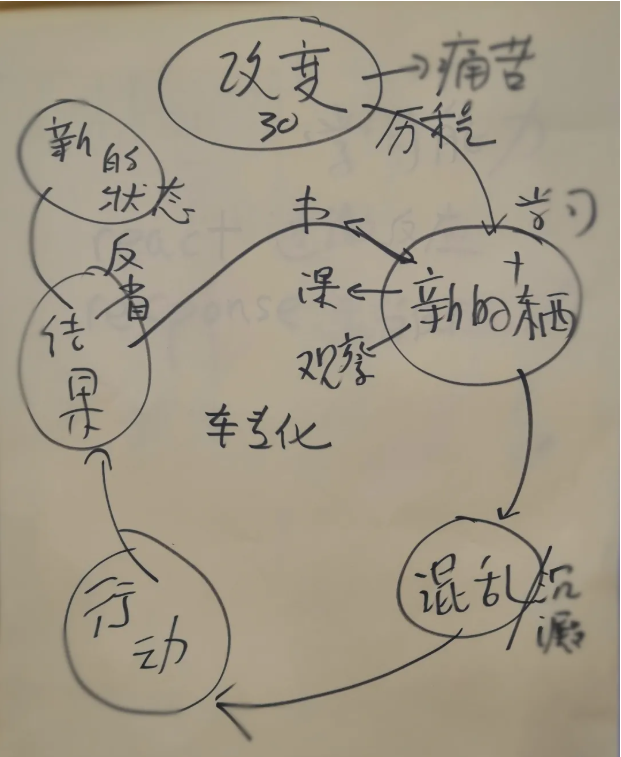 改变
30
→痛苦
历程
新的
状态
反省
结果
书
学习
+
新的东西
课
观察
转化
混乱/沉淀
行动
react
response